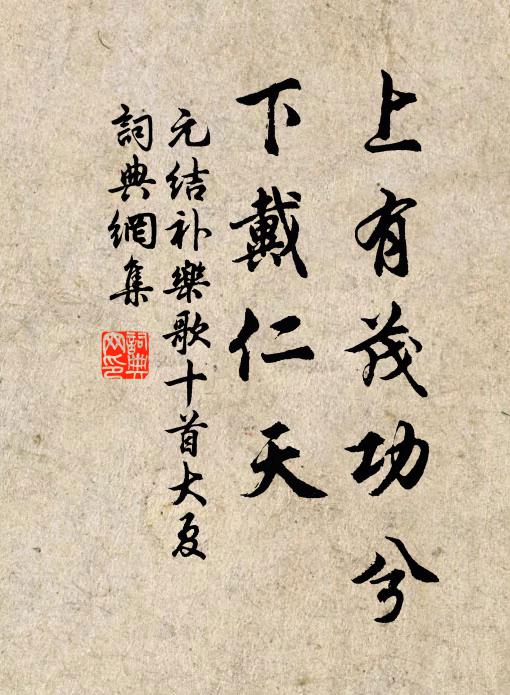 上有茂功兮
下戴仁天
元结补樂歌十首大夏
詞典網集
詞典网印